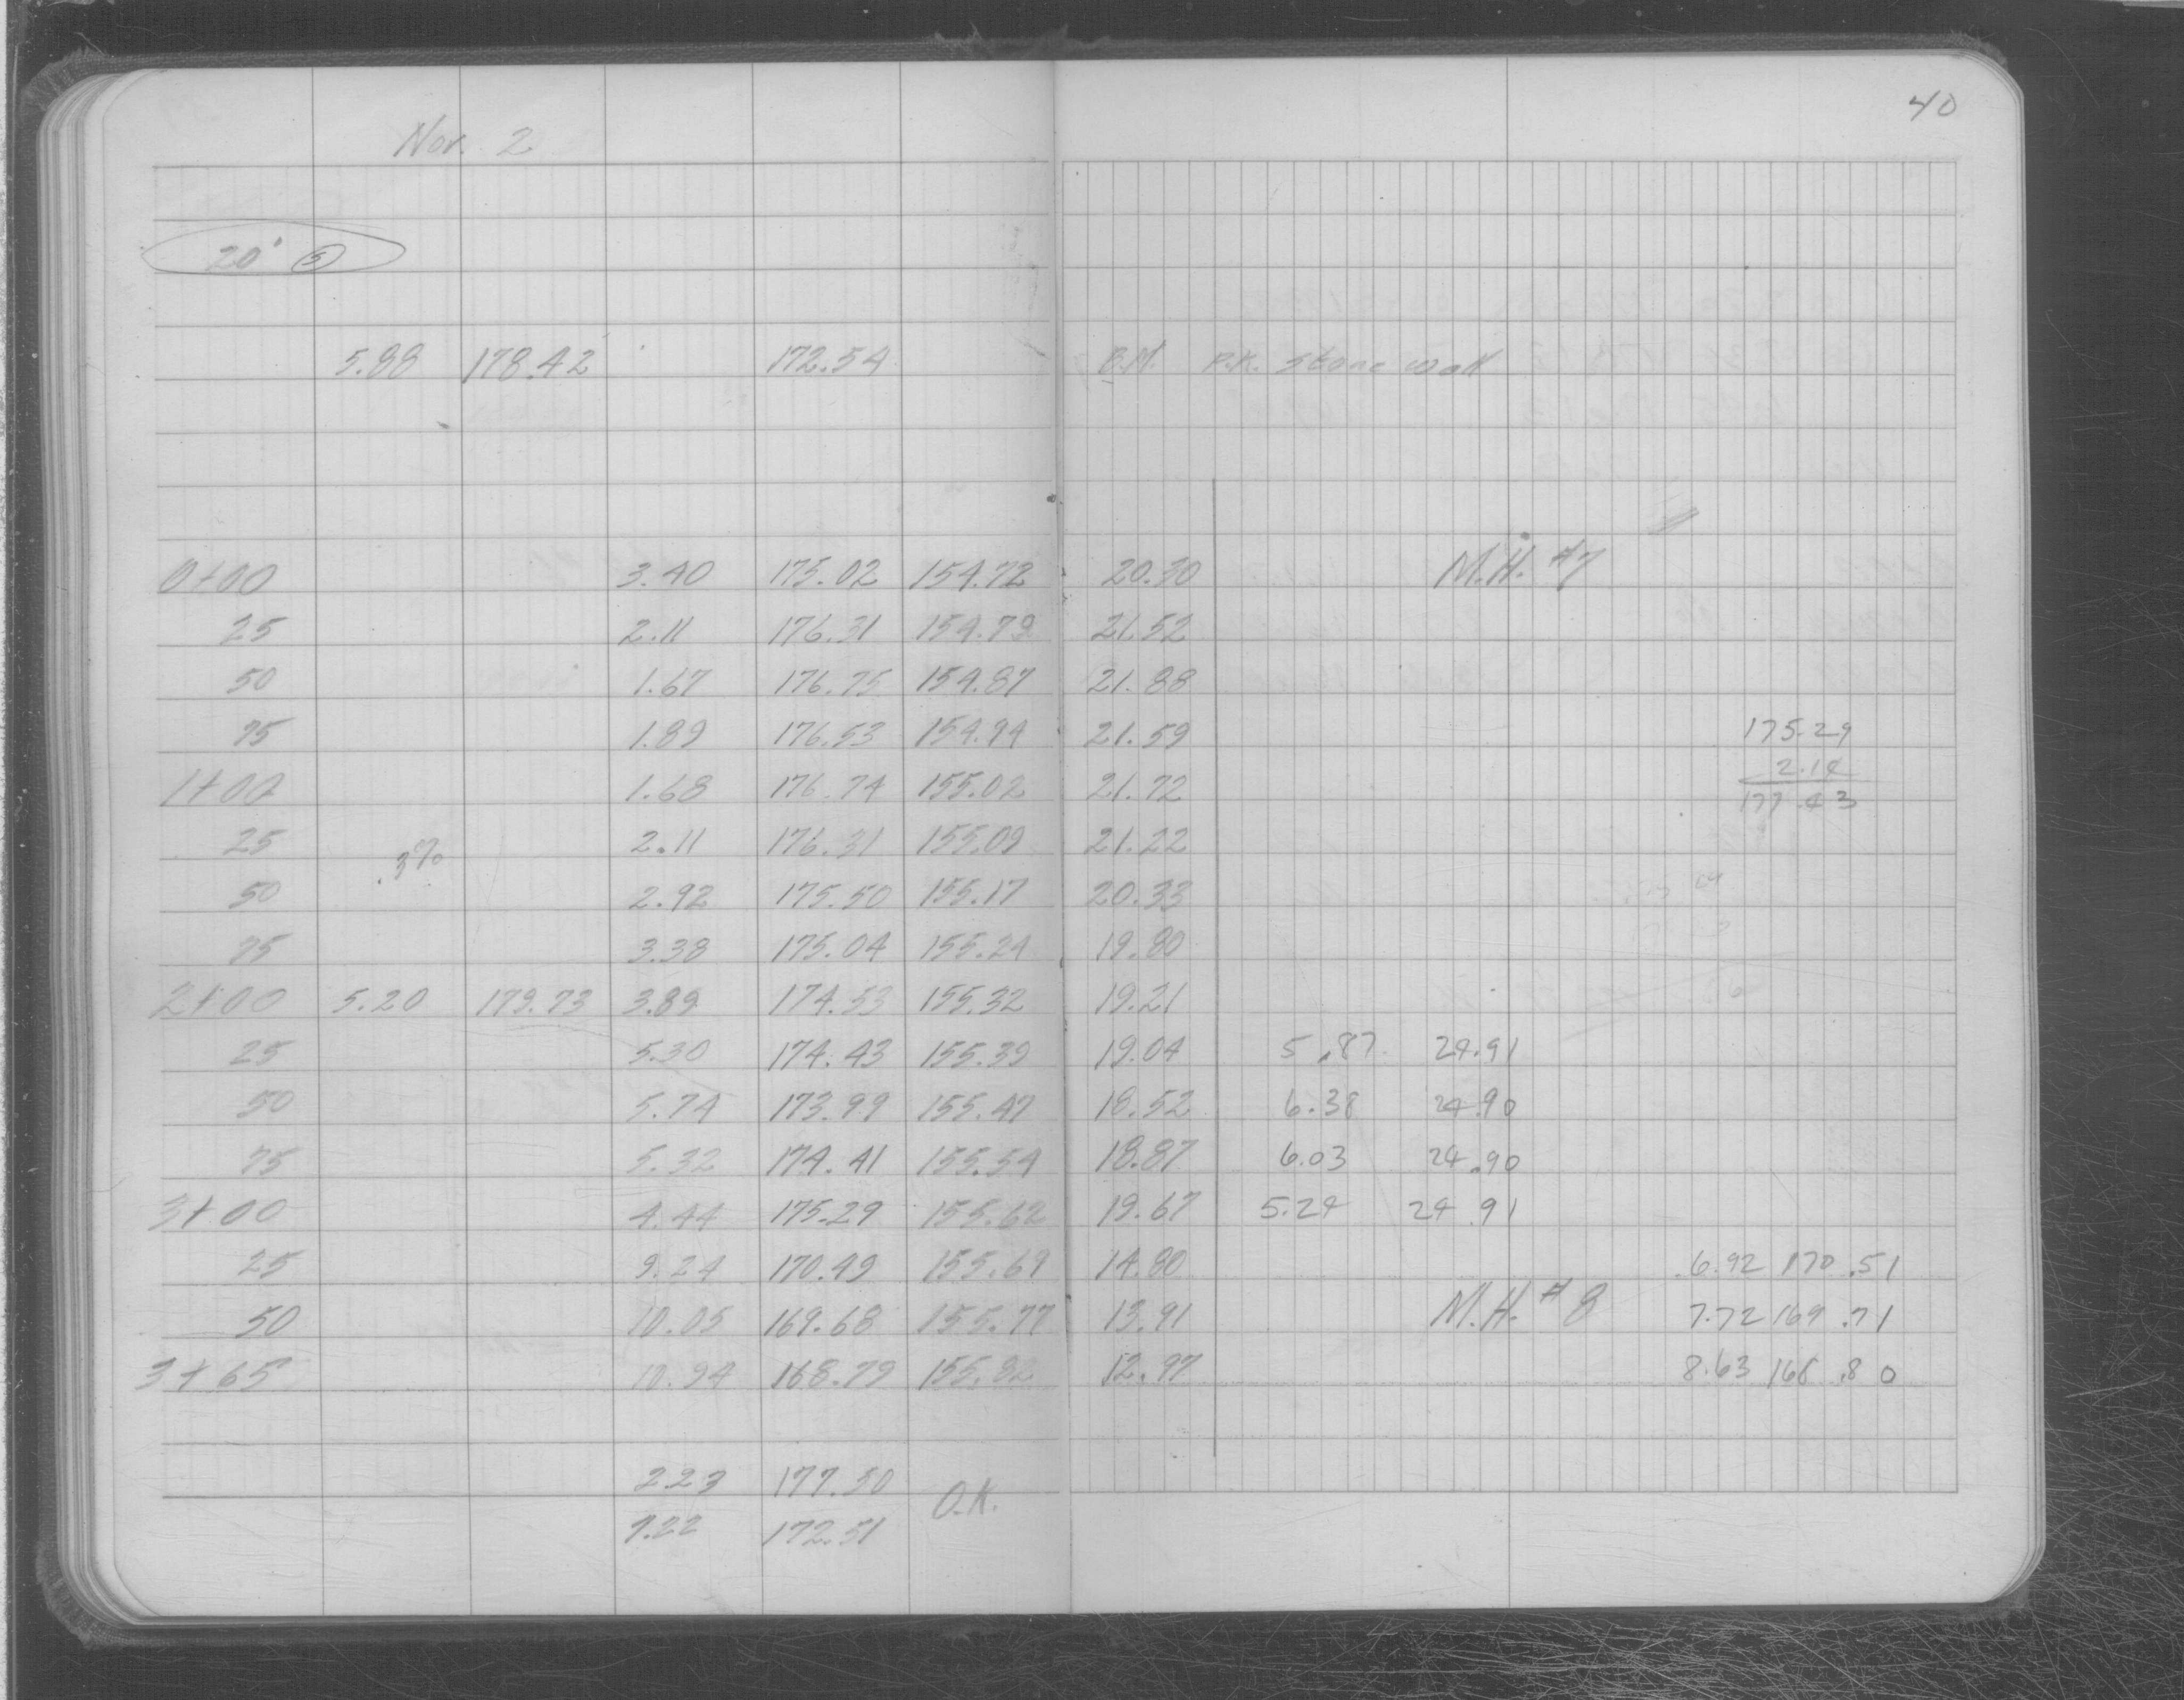 40
Nov. 2
20' 5
5.88 178.42 172.54 B.M. P.K. Stone wall
0+00 3.40 175.02 154.72 20.30 M.H. #7
25 2.11 176.31 154.79 21.52
50 1.67 176.75 154.87 21.88
75 1.89 176.53 154.94 21.59 175.29
2.14
1+00 1.68 176.74 155.02 21.72 177.43
25 2.11 176.31 155.09 21.22
.3%
50 2.92 175.50 155.17 20.33
75 3.38 175.04 155.24 19.80
2+00 5.20 179.73 3.89 174.53 155.32 19.21
25 5.30 174.43 155.39 19.04 5.87 24.91
50 5.74 173.99 155.47 18.52 6.38 24.90
75 5.32 174.41 155.54 18.87 6.03 24.90
3+00 4.44 175.29 155.62 19.67 5.24 24.91
25 9.24 170.49 155.69 14.80 6.92 170.51
50 10.05 169.68 155.77 13.91 M.H. #8 7.72 169.71
3+65 10.94 168.79 155.82 12.97 8.63 168.80
2.23 177.50
O.K.
7.22 172.51